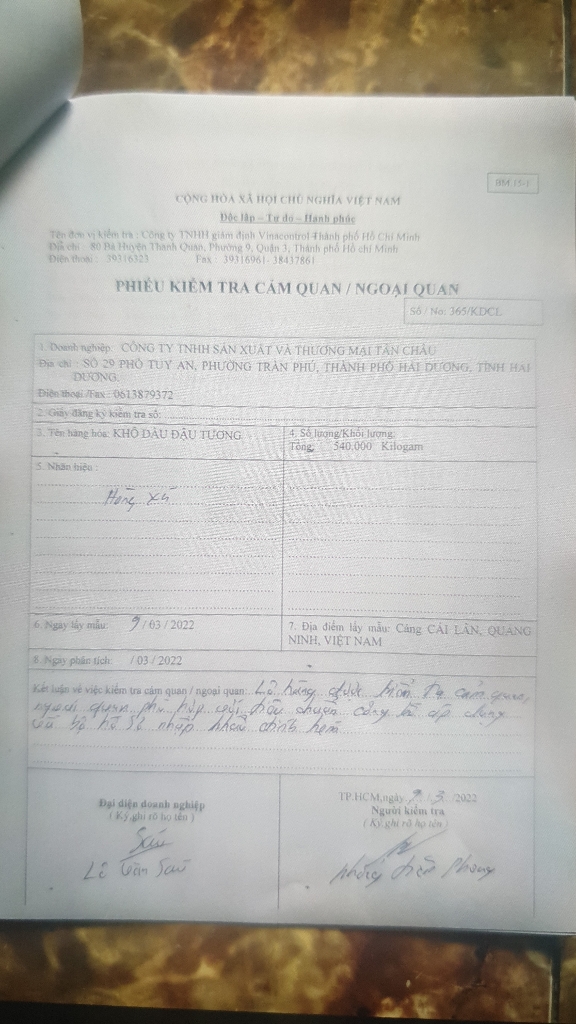 BM 15-1
CỘNG HÒA XÃ HỘI CHỦ NGHĨA VIỆT NAM
Độc lập – Tự do – Hạnh phúc
Tên đơn vị kiểm tra : Công ty TNHH giám định Vinacontrol Thành phố Hồ Chí Minh
Địa chỉ : 80 Bà Huyện Thanh Quan, Phường 9, Quận 3, Thành phố Hồ chí Minh
Điện thoại : 39316323 Fax : 39316961- 38437861
PHIẾU KIỂM TRA CẢM QUAN / NGOẠI QUAN
Số / No: 365/KDCL
1. Doanh nghiệp: CÔNG TY TNHH SẢN XUẤT VÀ THƯƠNG MẠI TÂN CHÂU
Địa chỉ : SỐ 29 PHỐ TUY AN, PHƯỜNG TRẦN PHÚ, THÀNH PHỐ HẢI DƯƠNG, TỈNH HẢI
DƯƠNG.
Điện thoại /Fax : 0613879372
2. Giấy đăng ký kiểm tra số:
3. Tên hàng hóa: KHÔ DẦU ĐẬU TƯƠNG
4. Số lượng/Khối lượng:
Tổng: 540,000 Kilogam
5. Nhãn hiệu :
Hàng xá
6. Ngày lấy mẫu: 9 / 03 / 2022
7. Địa điểm lấy mẫu: Cảng CÁI LÂN, QUẢNG
NINH, VIỆT NAM
8. Ngày phân tích: / 03 / 2022
Kết luận về việc kiểm tra cảm quan / ngoại quan: Lô hàng được kiểm tra cảm quan,
ngoại quan phù hợp với tiêu chuẩn công bố áp dụng
và bộ hồ sơ nhập khẩu đính kèm
Đại diện doanh nghiệp
( Ký,ghi rõ họ tên )
Lê Văn
TP.HCM,ngày 9 / 3 /2022
Người kiểm tra
( Ký,ghi rõ họ tên )
Phong